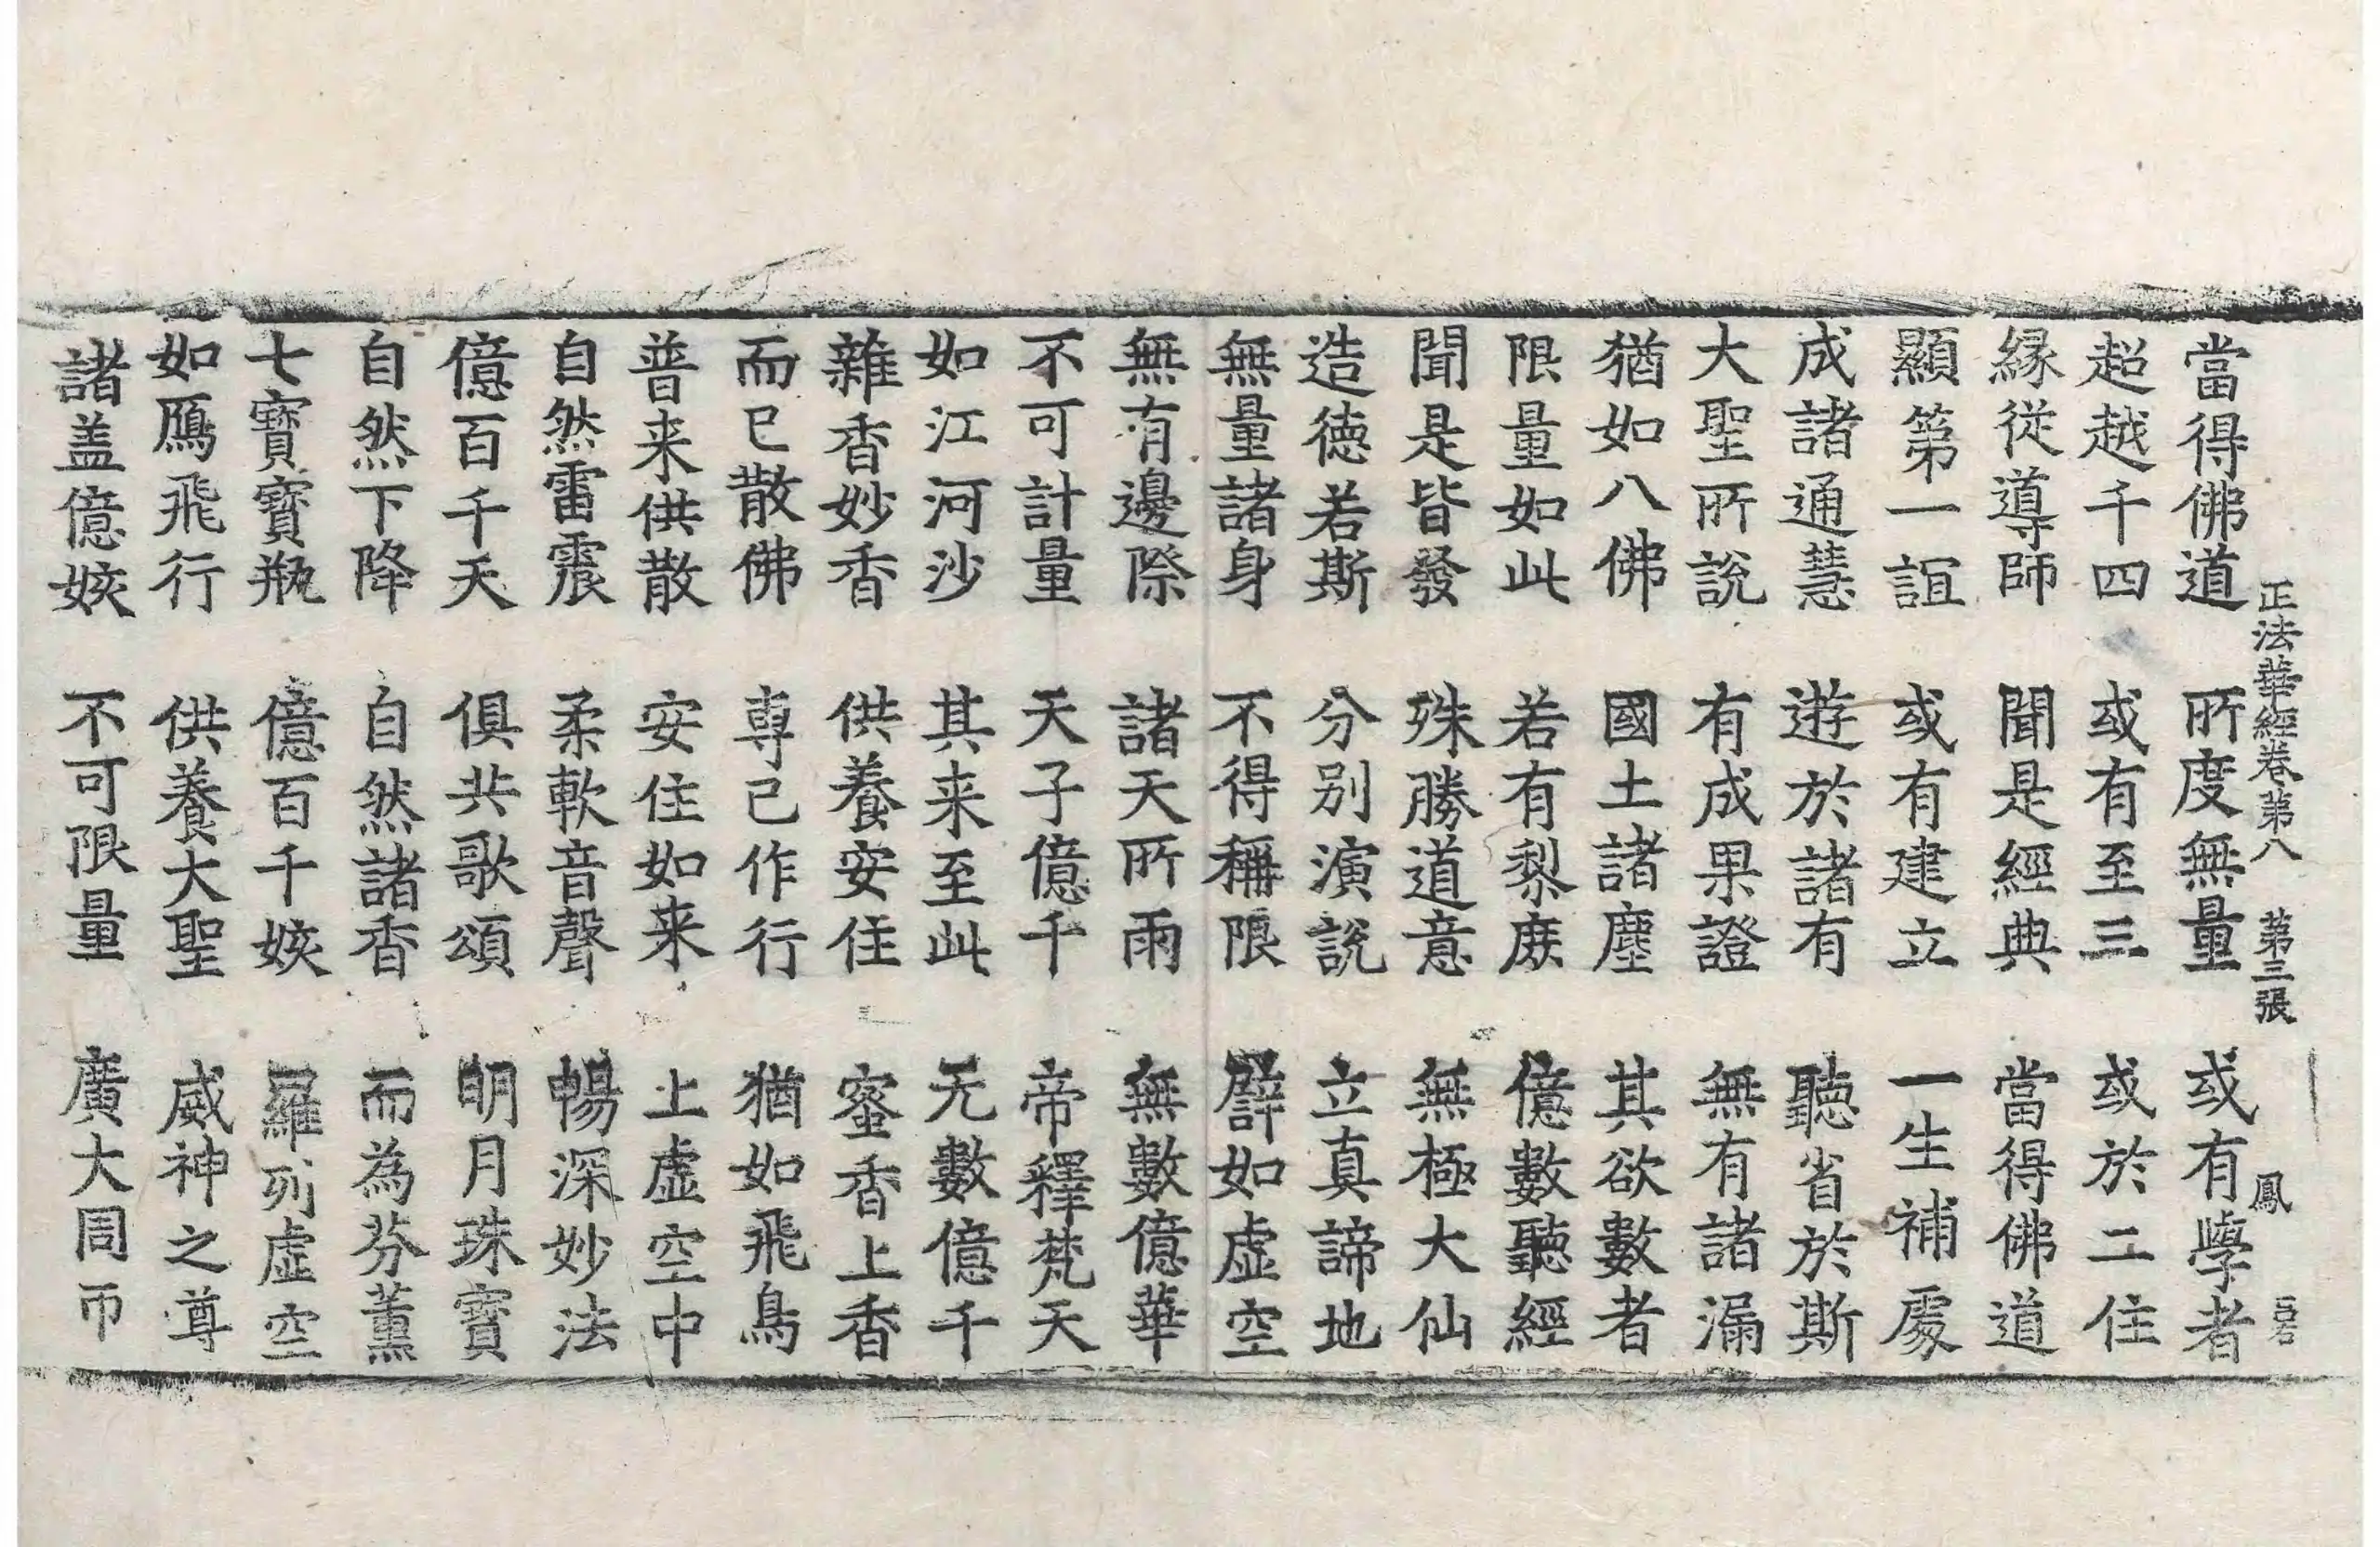 正法華經卷第八 第三張 鳳
當得佛道 所度無量 或有學者
超越千四 或有至三 或於二住
縁從導師 聞是經典 當得佛道
顯第一誼 或有建立 一生補處
成諸通慧 遊於諸有 聽省於斯
大聖所説 有成果證 無有諸漏
猶如八佛 國土諸塵 其欲數者
限量如此 若有黎庶 億數聽經
聞是皆發 殊勝道意 無極大仙
造徳若斯 分别演説 立真諦地
無量諸身 不得稱限 譬如虚空
無有邊際 諸天所雨 無數億華
不可計量 天子億千 帝釋梵天
如江河沙 其来至此 无數億千
雜香妙香 供養安住 蜜香上香
而已散佛 専已作行 猶如飛鳥
普来供散 安住如来 上虚空中
自然雷震 柔軟音聲 暢深妙法
億百千天 俱共歌頌 明月珠寶
自然下降 自然諸香 而為芬薰
七寶寶瓶 億百千姟 羅列虚空
如鴈飛行 供養大聖 威神之尊
諸盖億姟 不可限量 廣大周帀